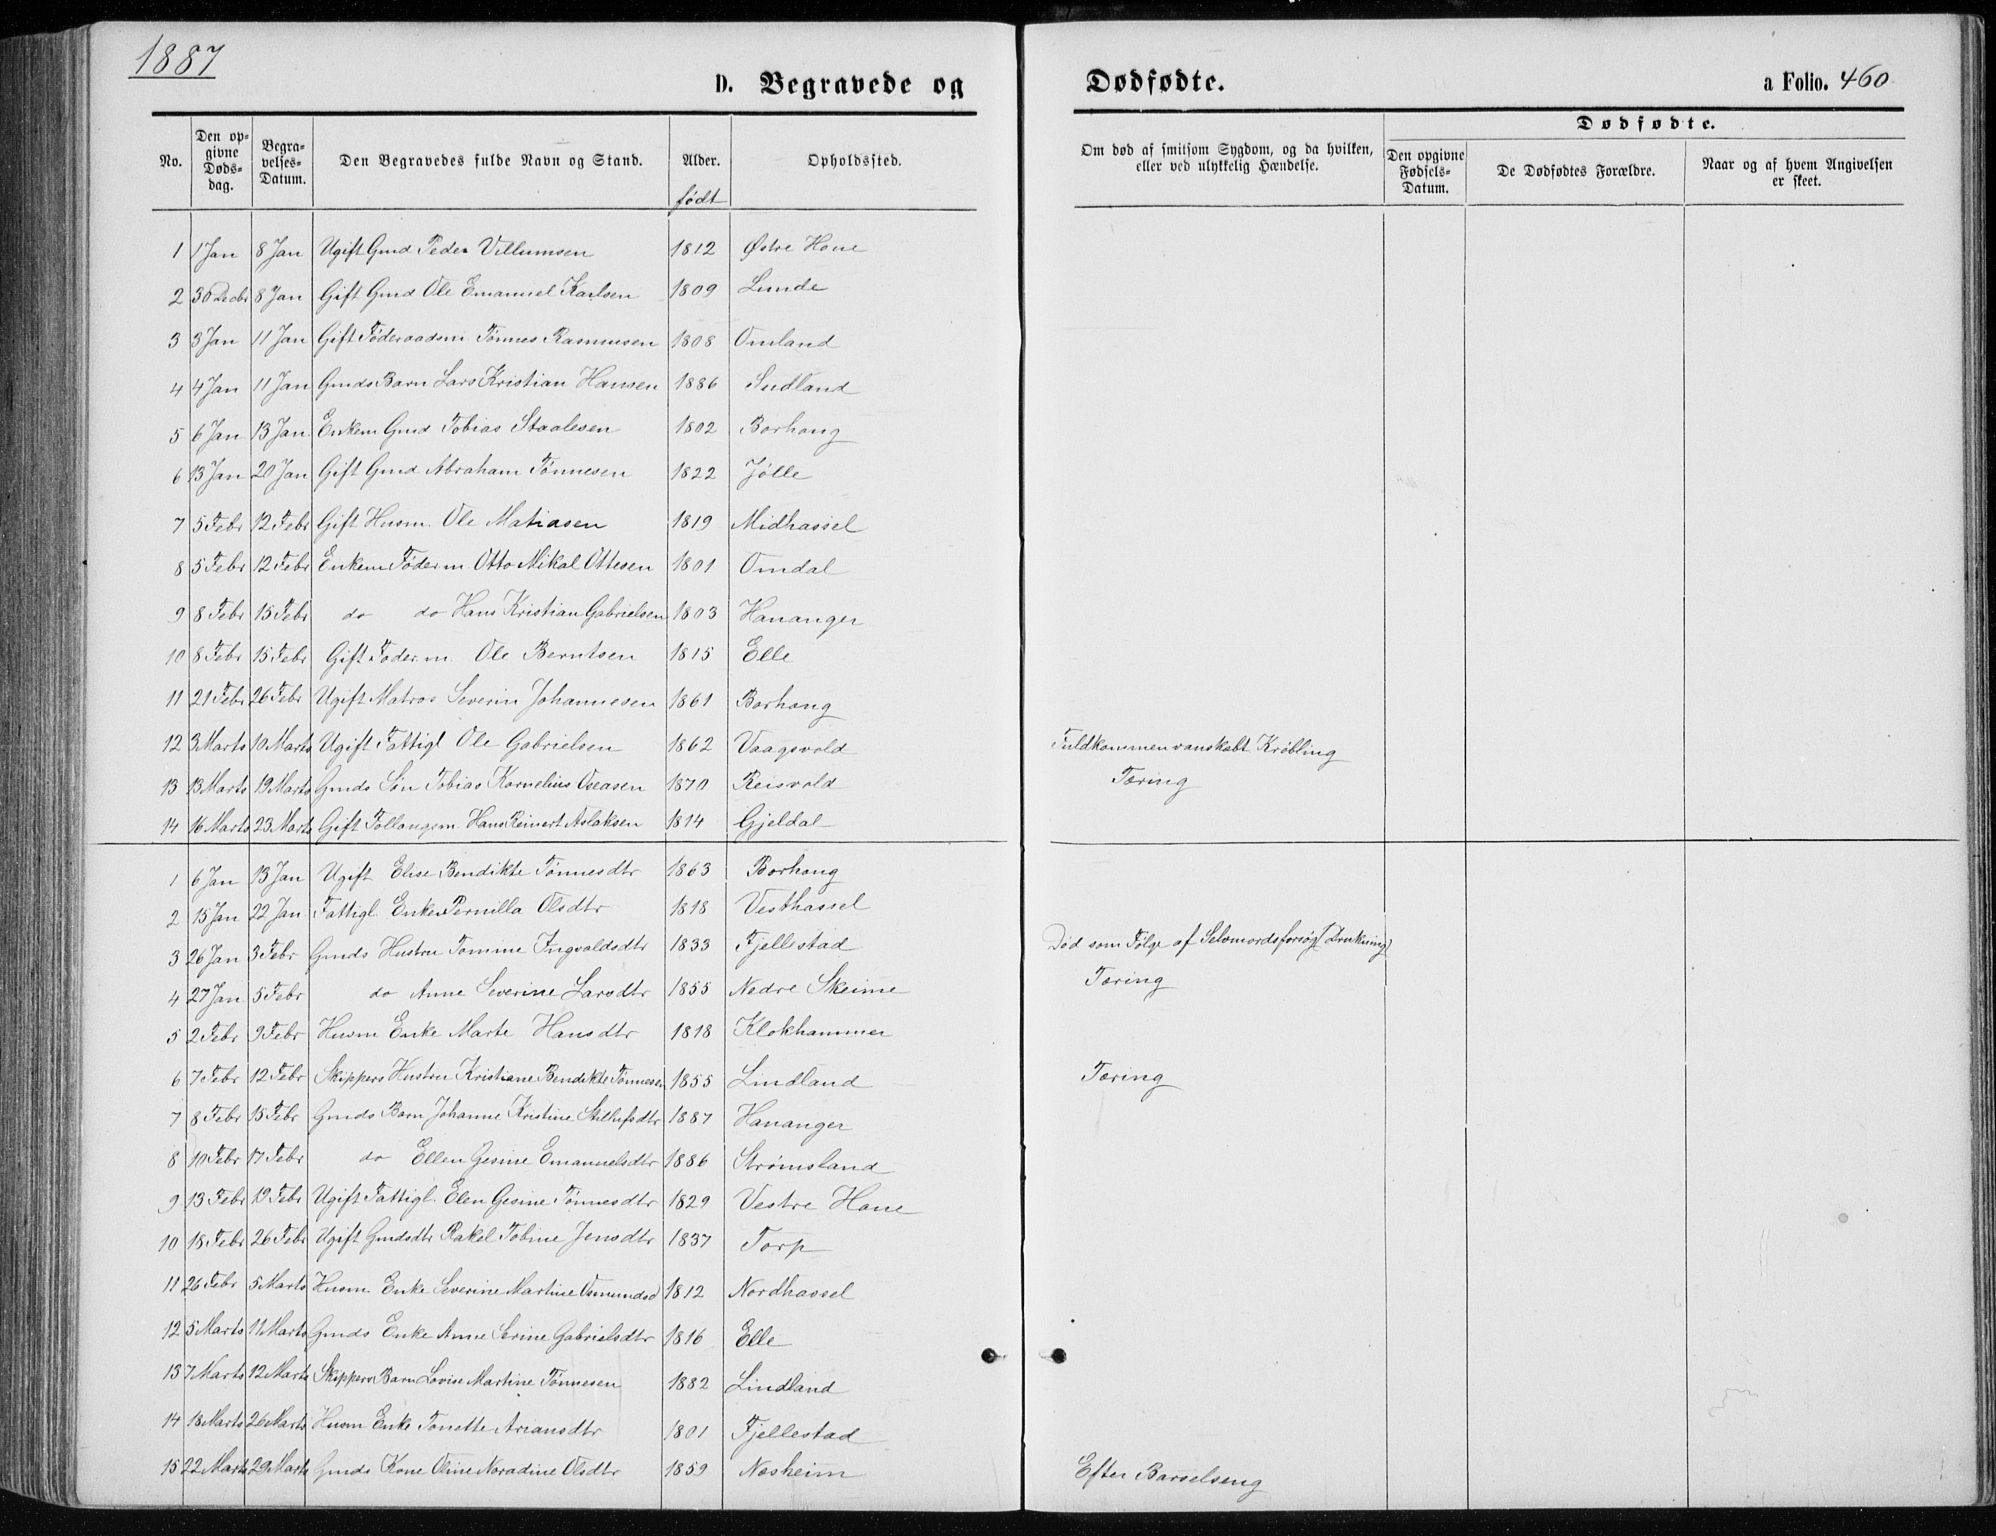 1887
D. Begravede og Dødfødte. a Folio. 460
Dødfødte.
No. Den opgivne Dødsdag. Begravelses-Datum. Den Begravedes fulde Navn og Stand. Alder. født Opholdssted. Om død af smitsom Sygdom, og da hvilken, eller ved ulykkelig Hændelse. Den opgivne Fødsels-Datum. De Dødfødtes Forældre. Naar og af hvem Angivelsen er skeet.
1 1 Jan 8 Jan Ugift Gmd Peder Villumsen 1812 Østre Hone
2 30 Decbr 8 Jan Gift Gmd Ole Emanuel Karlsen 1809 Lunde
3 3 Jan 11 Jan Gift Føderaadsm Tønnes Rasmusen 1808 Omland
4 4 Jan 11 Jan Gmds Barn Lars Kristian Hansen 1886 Sudland
5 6 Jan 13 Jan Enkem Gmd Tobias Staalesen 1802 Borhoug
6 13 Jan 20 Jan Gift Gmd Abraham Tønnesen 1822 Jølle
7 5 Febr 12 Febr Gift Husm. Ole Matiasen 1819 Midhassel
8 5 Febr 12 Febr Enkem Føderm. Otto Mikal Ottesen 1801 Omdal
9 8 Febr 15 Febr do do Hans Kristian Gabrielsen 1803 Hananger
10 8 Febr 15 Febr Gift Føder.m. Ole Berntsen 1815 Elle
11 21 Febr 26 Febr Ugift Matros Severin Johannesen 1861 Borhoug
12 3 Marts 10 Marts Ugift Fattigl Ole Gabrielsen 1862 Vaagsvold Fuldkommen vanskabt Krøbling
13 13 Marts 19 Marts Gmds Søn Tobias Kornelius Oseasen 1870 Reisvold Tæring
14 16 Marts 23 Marts Gift Follaugsm. Hans Reinert Aslaksen 1814 Gjeldal
1 6 Jan 13 Jan Ugift Elise Bendikte Tønnesdtr 1863 Borhoug
2 15 Jan 22 Jan Fattigl. Enke Pernilla Olsdtr 1818 Vesthassel
3 26 Jan 3 Febr Gmds Hustru Tomine Ingvaldsdtr 1833 Fjellestad Død som Følge af Selvmordsforsøg (Drukning)
4 27 Jan 5 Febr do Anne Severine Larsdtr 1855 Nedre Skeime Tæring
5 2 Febr 9 Febr Husm Enke Marte Hansdtr 1818 Klokhammer
6 7 Febr 12 Febr Skippers Hustru Kristiane Bendikte Tønnesen 1855 Lindland Tæring
7 8 Febr 15 Febr Gmds Barn Johanne Kristine Stillufsdtr 1887 Hananger
8 10 Febr 17 Febr do Ellen Gesine Emanuelsdtr 1886 Strømsland
9 13 Febr 19 Febr Ugift Fattigl. Elen Gesine Tønnesdtr 1829 Vestre Hone
10 18 Febr 26 Febr Ugift Gmdsdtr Rakel Tobine Jensdtr 1837 Torp
11 26 Febr 5 Marts Husm Enke Severine Martine Osmundsd 1812 Nordhassel
12 5 Marts 11 Marts Gmds Enke Anne Serine Gabrielsdtr 1816 Elle
13 7 Marts 12 Marts Skippers Barn Lovise Martine Tønnesen 1882 Lindland
14 18 Marts 26 Marts Husm Enke Tonette Ariansdtr 1801 Fjellestad
15 22 Marts 29 Marts Gmds Kone Oline Noradine Olsdtr 1859 Næsheim Efter Barselseng